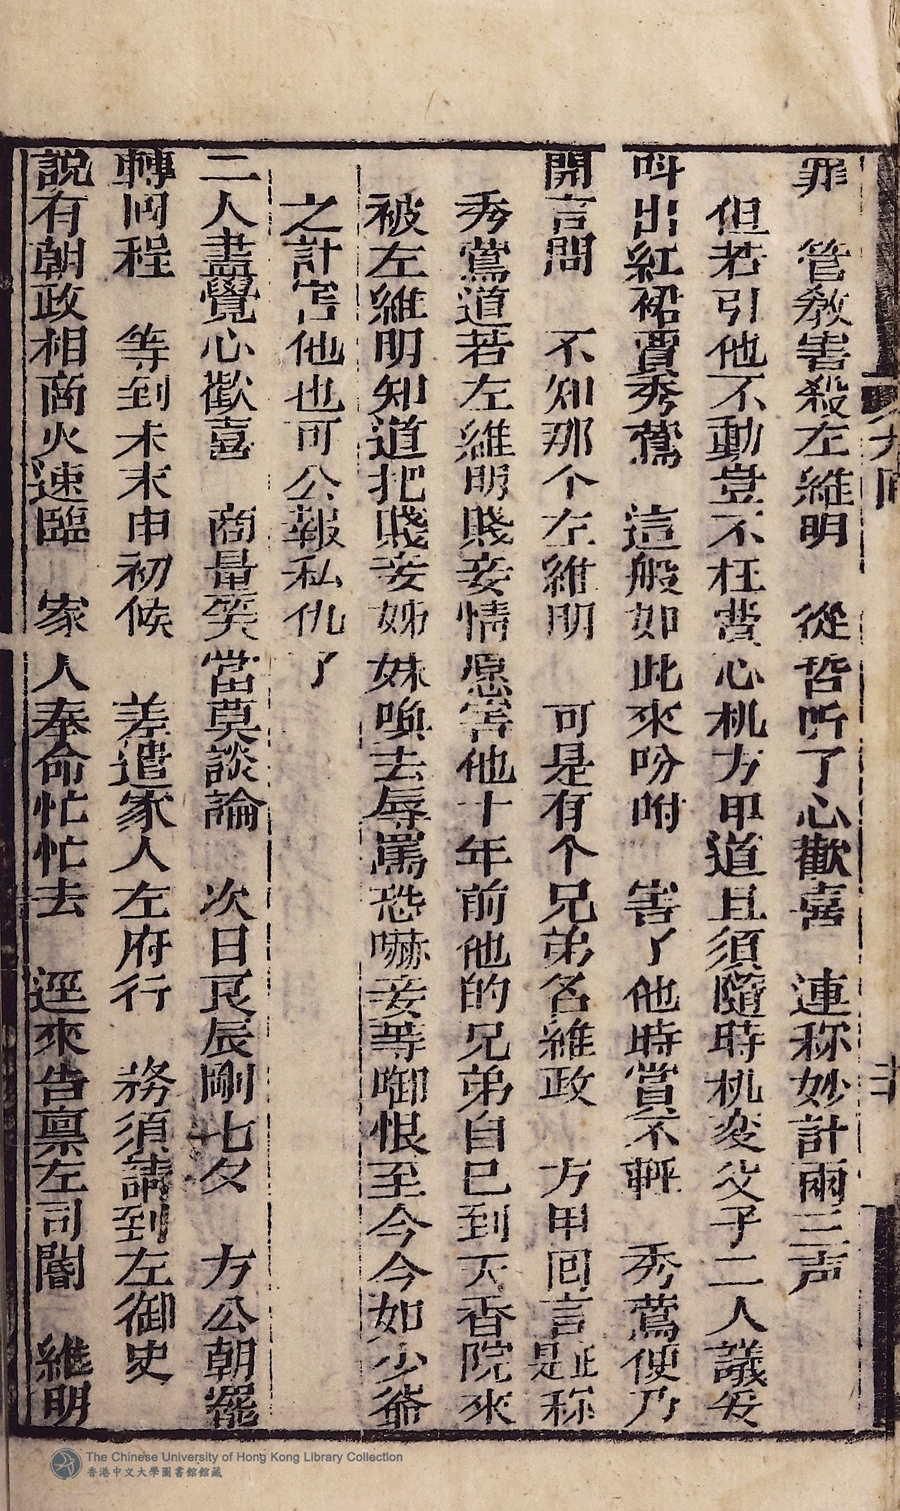 罪　管教害殺左維明　從哲听了心歡喜　連称妙計兩三声
但若引他不動豈不枉費心机方甲道且須隨時机変父子二人議妥
呌出紅裙賈秀鶯　這般如此來吩咐　害了他時賞不輕　秀鶯便乃
開言問　不知那个左維明　可是有个兄弟名維政　方甲回言是正称
秀鶯道若左維明賤妾情愿害他十年前他的兄弟自已到天香院來
被左維明知道把賤妾姊妹喚去辱罵恐嚇妾等啣恨至今今如少爺
之計害他也可公報私仇了
二人盡覺心歡喜　商量奕當莫談論　次日良辰剛七夕　方公朝罷
轉回程　等到未末申初候　差遣家人左府行　務須請到左御史
說有朝政相商火速臨　家人奉命忙忙去　逕來告禀左司閽　維明
九回
The Chinese University of Hong Kong Library Collection
香港中文大學圖書館館藏